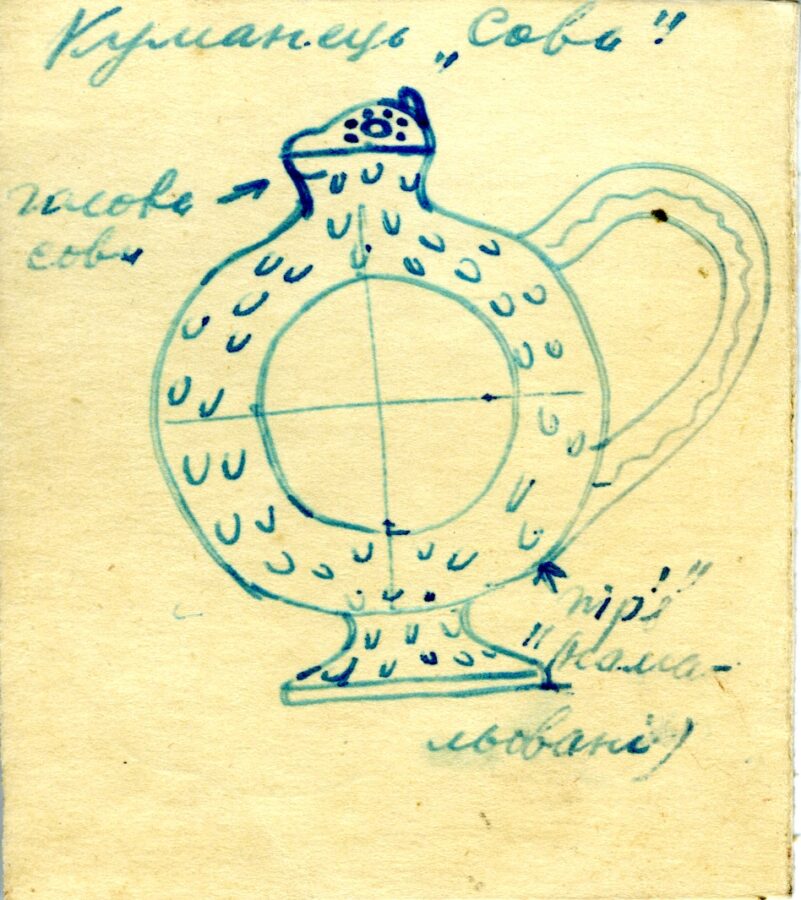 Куманець „Сова"
голова
сови
пір'я"
"(нама-
льовані)